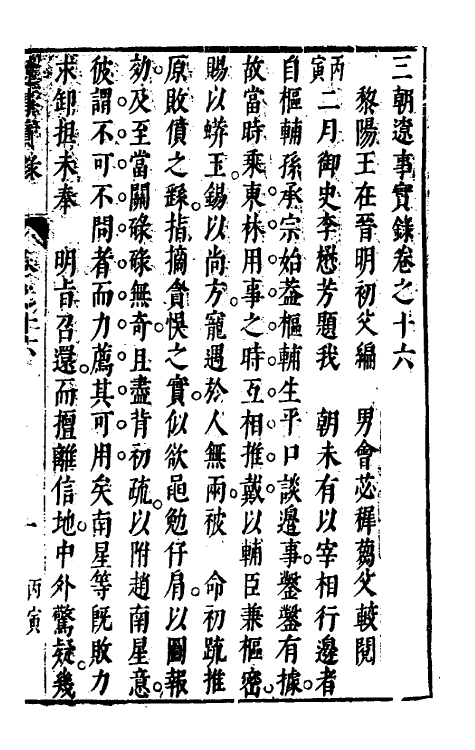 三朝遼事實錄卷之十六
黎陽王在晉明初父編　男會苾穉蒭父較閱
丙寅二月御史李懋芳題我　朝未有以宰相行邊者
自樞輔孫承宗始葢樞輔生平口談邊事鑿鑿有據
故當時乘東林用事之時互相推戴以輔臣兼樞密
賜以蟒玉錫以尚方寵遇於人無兩被　命初䟽推
原敗僨之繇指摘貪悞之實似欲黽勉仔肩以圖報
効及至當關碌碌無奇且盡背初疏以附趙南星意
彼謂不可不問者而力薦其可用矣南星等旣敗力
求卸担未奉　明旨召還而擅離信地中外驚疑幾
十六
一
丙寅